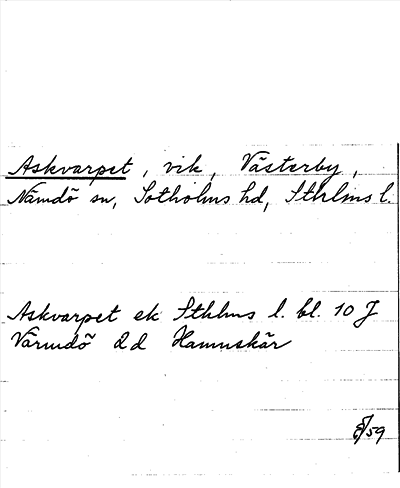 Askvarpet, vik, Västerby,
Nämdö sn, Sotholms hd, Sthlms l.
Askvarpet ek Sthlms l. bl. 10 J
Värmdö d d Hamnskär
/59